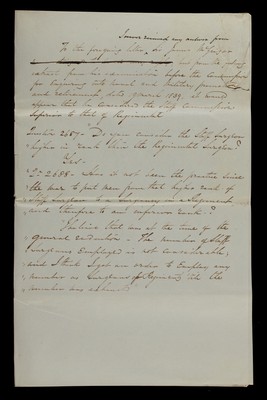 I never received any answer from
To the foregoing letter, Sir James McGrigor
extract from his examination before the Commissioners
for inquiring into Naval and Military promotion
and retirement, dated 1839, it would
appear that he considered the Staff Commission
superior to that of Regimental
Question 2687 - Do you consider the Staff Surgeon
higher in rank than the Regimental Surgeon?
Yes -
Qn 2688 - Has it not been the practice since
the war to put men from that higher rank of
Staff Surgeon to a Surgeoncy in a Regiment
and therefore to an inferior rank?
I believe that was at the time of the
general reduction. The number of Staff
Surgeons employed is not considerable,
and I think I got an order to employ any
number as Surgeons of Regiments till the
number was reduced